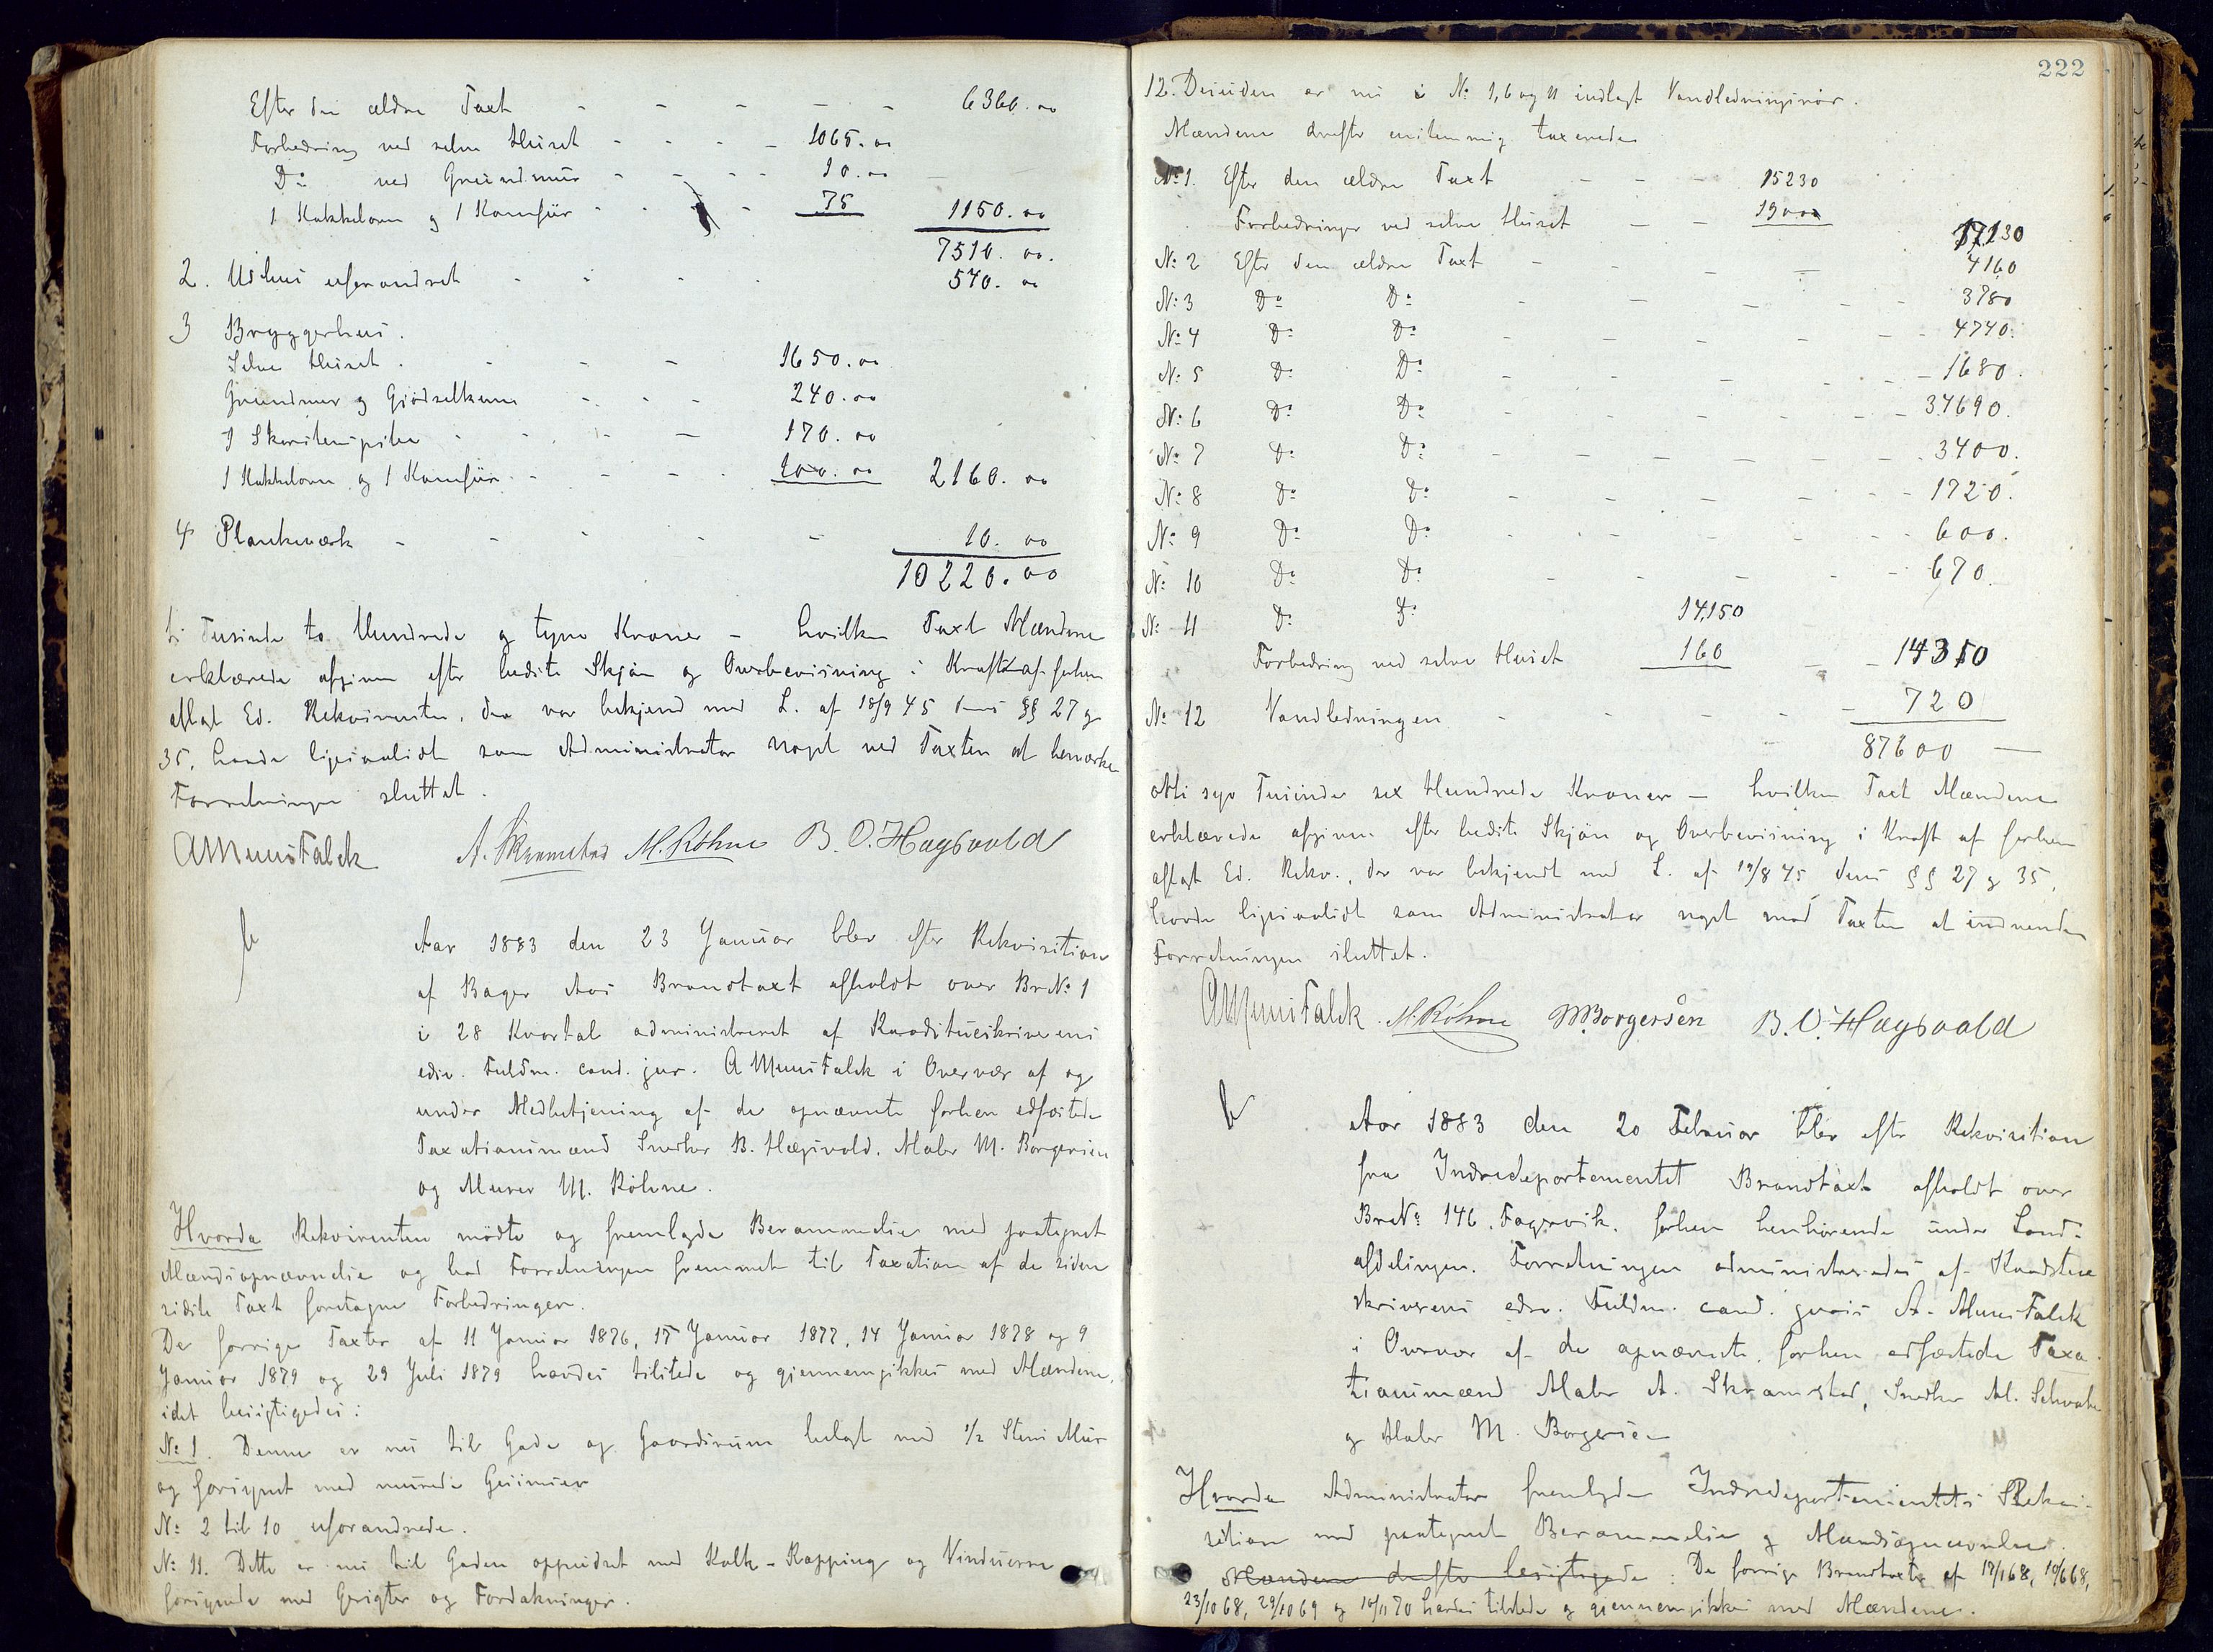 Efter den ældre Taxt - - - - - 6360.00
Forbedring ved selve Huset - - - - 1065.00
Do ved Grundmur - - - - 10.00
1 Kakkelovn og 1 Komfür - - - 75 1150.00
7510.00.
2. Udhus uforandret - - - - 540.00
3 Bryggerhus.
Selve Huset. - - - 1650.00
Grundmur og Gjödselkum - - - 240.00
1 Skorstenspibe - - - - 170.00
1 Kakkelovn og 1 Komfür - - - - 100.00 2160.00
4 Plankeværk - - - - - 10.00
10220.00
ti Tusinde to Hundrede og tyve Kroner - hvilken Taxt Mændene
erklærede afgiven efter bedste Skjön og Overbevisning i Kraft af forhen
aflagt Ed. Rekvirenten, der var bekjend med L. af 18/9 45 dens §§ 27 og
35, havde ligesaalidt som Administrator noget ved Taxten at bemærke
Forretningen sluttet.
A Muus Falck A. Skramstad M. Röhne B. O. Hagsvold
Aar 1883 den 23 Januar blev efter Rekvisition
af Bager Aas Brandtaxt afholdt over BrNo 1
i 28 Kvartal administreret af Raadstueskriverens
edsv. Fuldm. cand. jur. A Muus Falck i Overvær af og
under Medbetjening af de opnævnte forhen edfæstede
Taxationsmænd Snedker B. Hægsvold, Maler M. Borgersen
og Murer M. Röhne.
Hvorda Rekvirenten mödte og fremlagde Berammelse med paategnet
Mændsopnævnelse og bad Forretningen fremmet til Taxation af de siden
sidste Taxt foretagne Forbedringer.
De forrige Taxter af 11 Januar 1876, 15 Januar 1877, 14 Januar 1878 og 9
Januar 1879 og 29 Juli 1879 havdes tilstede og gjennemgikkes med Mændene,
idet besigtigedes:
No 1. Denne er nu til Gade og Gaardsrum belagt med 1/2 Stens Mur
og forsynet med murede Gesimser
No 2 til 10 uforandrede.
No 11. Dette er nu til Gaden oppudset med Kalk-Rapping og Vinduerne
forsynede med Gerigter og Fordakninger.
222
12. Desuden er nu i No 1, 6 og 11 indlagt Vandledningsrör.
Mændene derefter enstemmig taxerede
No 1. Efter den ældre Taxt - - - 15230
Forbedringer ved selve Huset - - 1900 17130
No 2 Efter den ældre Taxt - - - - 4160
No 3 Do Do - - - - - 3780
No 4 Do Do - - - - - 4740.
No 5 Do Do - - - - - 1680.
No 6 Do Do - - - - - 34690.
No 7 Do Do - - - - - 3400.
No 8 Do Do - - - - - 1720.
No 9 Do Do - - - - - 600.
No 10 Do Do - - - - - 670.
No 11 Do Do 14,150
Forbedring ved selve Huset 160 - - 14310
No 12 Vandledningen - - - - 720
87600 -
otti syv Tusinde sex Hundrede Kroner - hvilken Taxt Mændene
erklærede afgiven efter bedste Skjön og Overbevisning i Kraft af forhen
aflagt Ed. Rekv., der var bekjendt med L. af 19/8 45 dens §§ 27 og 35,
havde ligesaalidt som Administrator noget mod Taxten at indvende
Forretningen sluttet.
A Muus Falck. M. Röhne M. Borgersen B. O. Hagsvold
Aar 1883 den 20 Februar blev efter Rekvisition
fra Indredepartementet Brandtaxt afholdt over
BrNo 146, Fagervik, forhen henhörende under Land-
afdelingen. Forretningen administreredes af Raadstue
skriverens edsv. Fuldm. cand. juris A. Muus Falck
i Overvær af de opnævnte, forhen edfæstede Taxa-
tionsmænd Maler A. Skramstad, Snedker M. Schwabe
og Maler M. Borgersen
Hvorda Administrator fremlagde Indredepartementets Rekvi-
sition med paategnet Berammelse og Mændsopnævnelse.
Mændene derefter besigtigede: De forrige Brandtaxter af 17/1 68, 10/6 68,
23/10 68, 29/10 69 og 10/11 70 havdes tilstede og gjennemgikkes med Mændene.